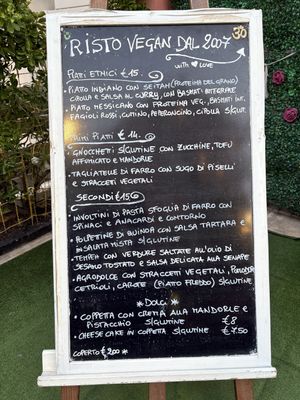 RISTO VEGAN DAL 2007
30
with ♥ LOVE
PIATTI ETNICI €15.
• PIATTO INDIANO CON SEITAN (PROTEINA DEL GRANO)
CIPOLLA E SALSA AL CURRY, CON BASMATI INTEGRALE
• PIATTO MESSICANO CON PROTEINA VEG., BASMATI INT.
FAGIOLI ROSSI, CUMINO, PEPERONCINO, CIPOLLA S/GLUT.
PRIMI PIATTI €14.
• GNOCCHETTI S/GLUTINE CON ZUCCHINE, TOFU
AFFUMICATO E MANDORLE
• TAGLIATELLE DI FARRO CON SUGO DI PISELLI
E STRACCETTI VEGETALI
SECONDI €15
• INVOLTINI DI PASTA SFOGLIA DI FARRO CON
SPINACI E ANACARDI E CONTORNO
• POLPETTINE DI QUINOA CON SALSA TARTARA E
INSALATA MISTA S/GLUTINE
• TEMPEH CON VERDURE SALTATE ALL'OLIO DI
SESAMO TOSTATO E SALSA DELICATA ALLA SENAPE
• AGRODOLCE CON STRACCETTI VEGETALI,
CETRIOLI, CAROTE (PIATTO FREDDO) S/GLUTINE
* DOLCI *
• COPPETTA CON CREMA ALLA MANDORLE E
PISTACCHIO S/GLUTINE €8
• CHEESE CAKE IN COPPETTA S/GLUTINE €7.50
COPERTO €2.00 *